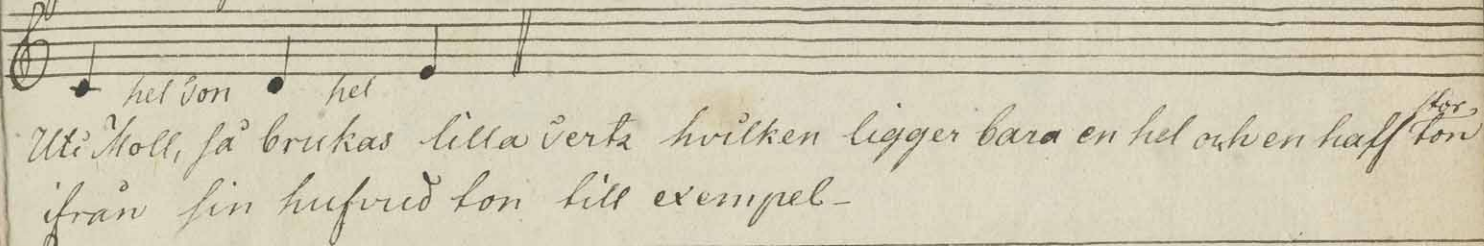 hel Ton hel
Uti Moll, så brukas lilla Tertz hvilken ligger bara en hel och en half stor ton
ifrån sin hufvud ton till exempel -